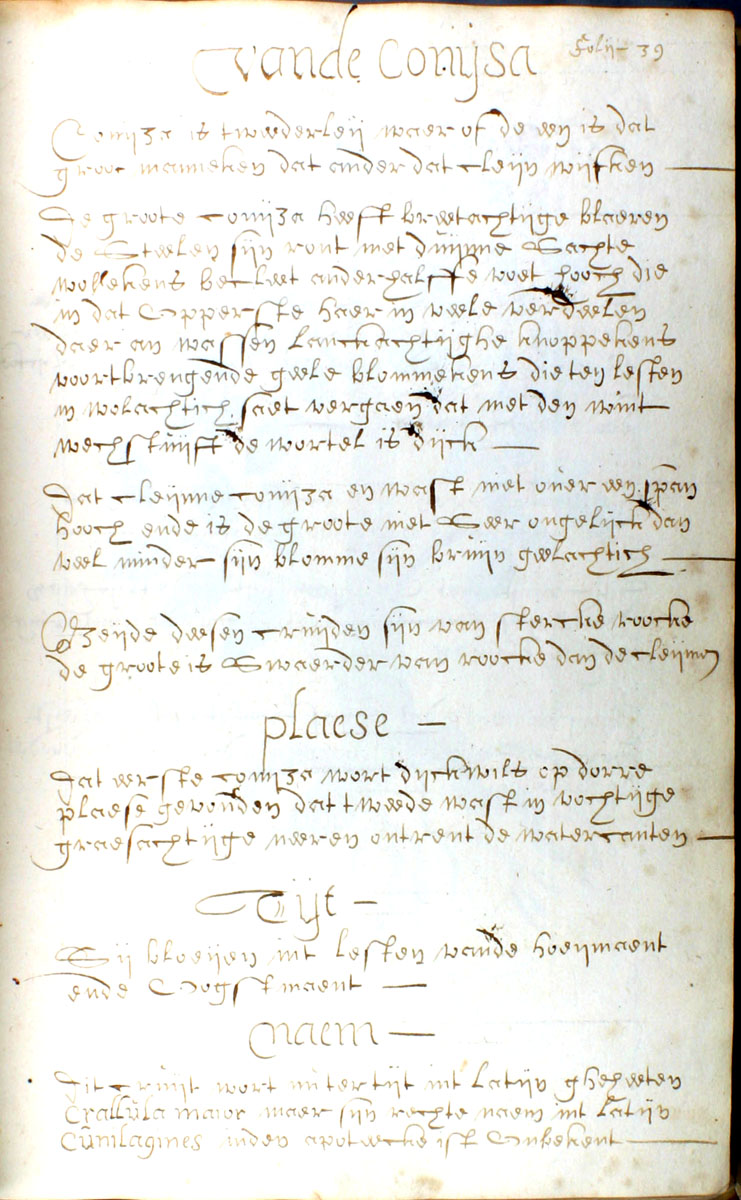 Folij 39
Vande Conijsa
Conijza is tweederleij waer of de een is dat
groot manneken dat ander dat cleijn wijfken
De groote conijza heeft breetachtijge blaeren
de Steelen sijn ront met dunne Sachte
wollekens becleet anderhalffe voet hooch die
in dat Opperste haer in veele verdeelen
daer an wassen lanckachtijghe knoppekens
voortbrengende geele blommekens die ten lesten
in wolachtich saet vergaen dat met den wint
wech stuijft de wortel is dijck
Dat cleijnne conijza en wast niet over een span
hooch ende is de groote niet Seer ongelijck dan
veel minder sijn blomme sijn bruijn geelachtich
Beijde deesen cruijden sijn van stercke roocke
de groote is Swaerder van roocke dan de cleijnne
plaese
Dat eerste conijza wort dijckwils op dorre
plaese gevonden dat tweede wast in vochtijge
graesachtijge neeren ontrent de watercanten
Tijt
Sij bloeijen int lesten vande hoeijmaent
ende Oogstmaent
naem
Dit cruijt wort in tertijt int Latijn gheheeten
Crallula maior maer sijn rechte naem int Latijn
Cunilagines inden apoteecke ist Onbekent